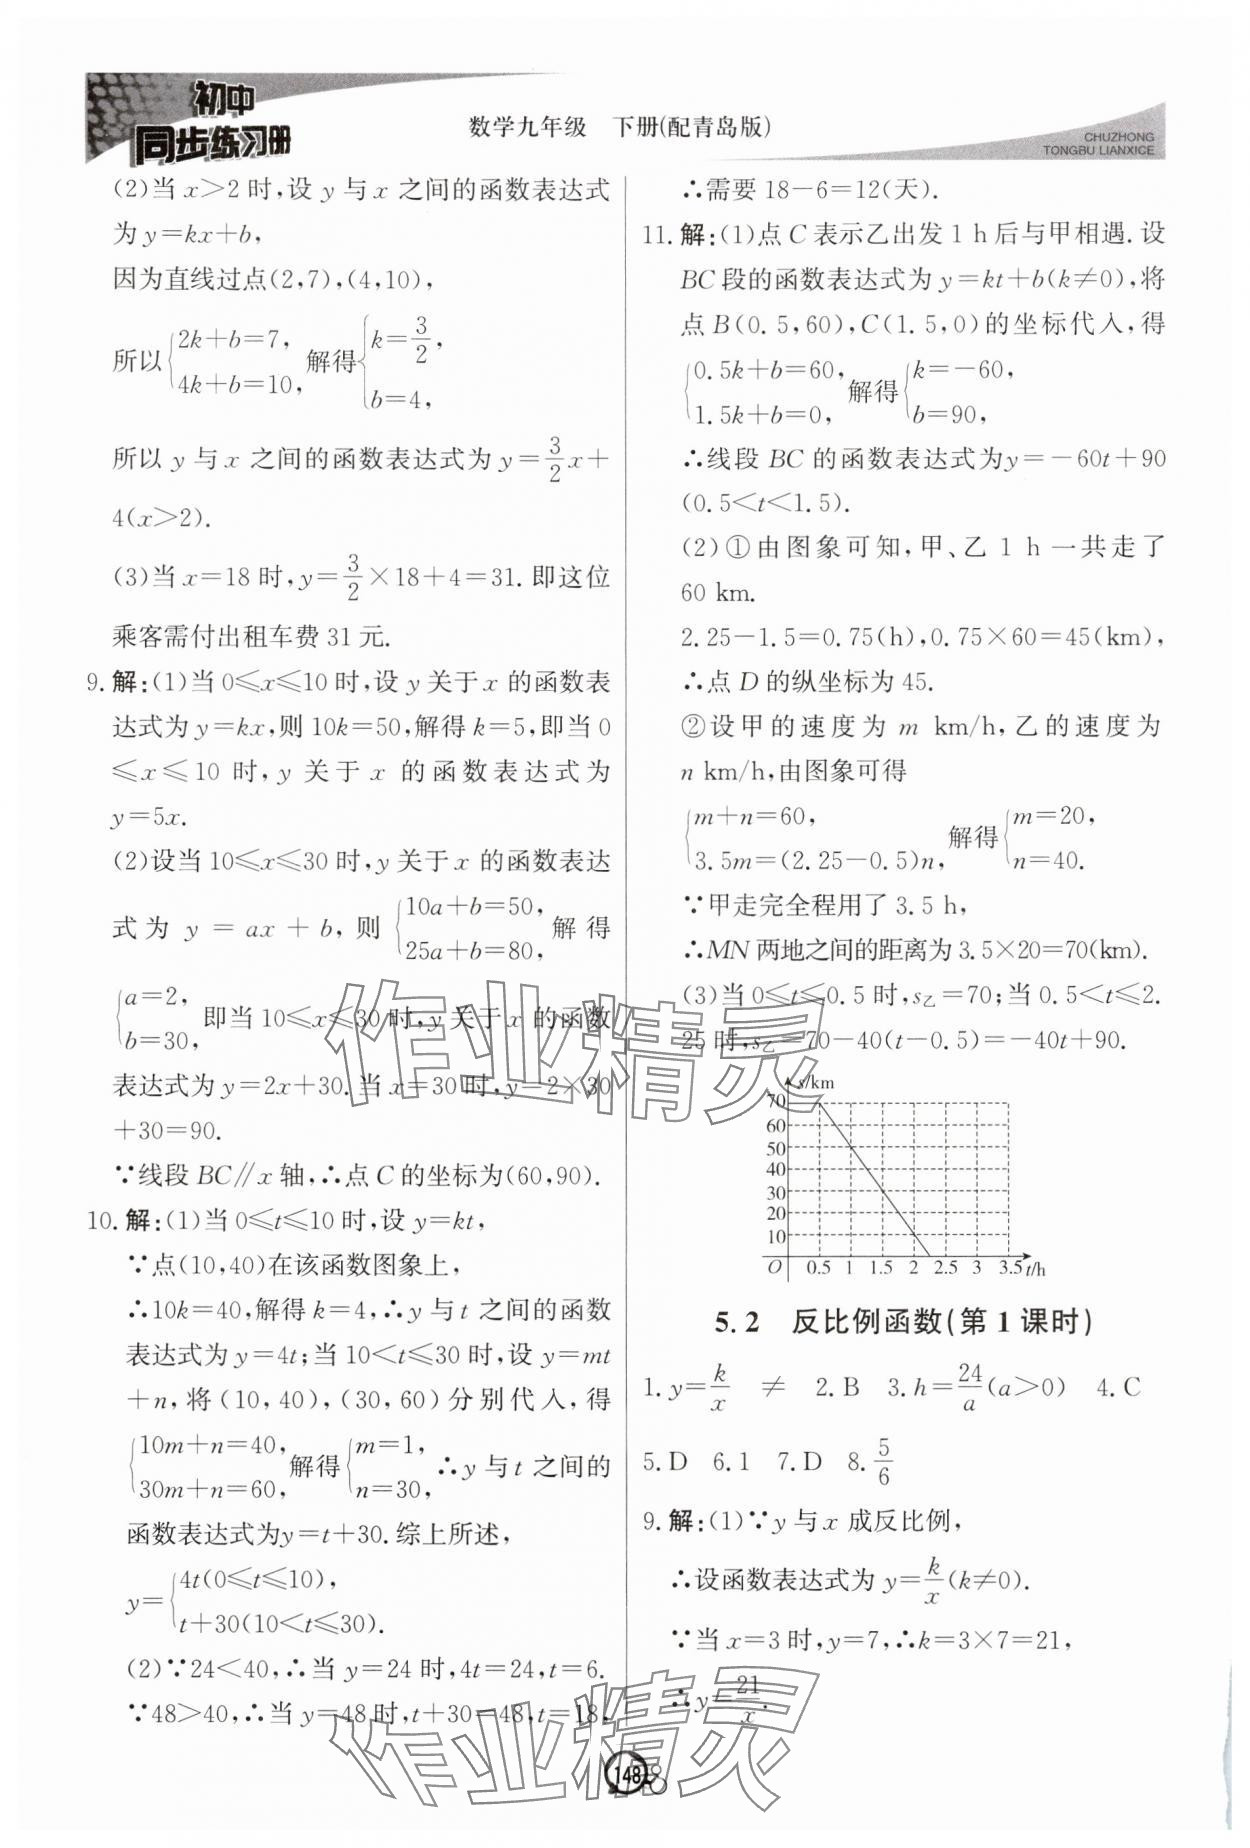 初中
同步练习册
数学九年级　下册(配青岛版)
CHUZHONG
TONGBU LIANXICE
(2)当 x>2 时,设 y 与 x 之间的函数表达式
为 y=kx+b,
因为直线过点(2,7),(4,10),
所以{2k+b=7, 4k+b=10, 解得{k=3/2, b=4,
所以 y 与 x 之间的函数表达式为 y=3/2x+
4(x>2).
(3)当 x=18 时,y=3/2×18+4=31.即这位
乘客需付出租车费 31 元.
9.解:(1)当 0≤x≤10 时,设 y 关于 x 的函数表
达式为 y=kx,则 10k=50,解得 k=5,即当 0
≤x≤10 时,y 关于 x 的函数表达式为
y=5x.
(2)设当 10≤x≤30 时,y 关于 x 的函数表达
式为 y=ax+b,则{10a+b=50, 25a+b=80, 解得
{a=2, b=30, 即当 10≤x≤30 时,y 关于 x 的函数
表达式为 y=2x+30.当 x=30 时,y=2×30
+30=90.
∵线段 BC∥x 轴,∴点 C 的坐标为(60,90).
10.解:(1)当 0≤t≤10 时,设 y=kt,
∵点(10,40)在该函数图象上,
∴10k=40,解得 k=4,∴y 与 t 之间的函数
表达式为 y=4t;当 10<t≤30 时,设 y=mt
+n,将(10,40),(30,60)分别代入,得
{10m+n=40, 30m+n=60, 解得{m=1, n=30, ∴y 与 t 之间的
函数表达式为y=t+30.综上所述,
y={4t(0≤t≤10), t+30(10<t≤30).
(2)∵24<40,∴当 y=24 时,4t=24,t=6.
∵48>40,∴当 y=48 时,t+30=48,t=18,
∴需要 18-6=12(天).
11.解:(1)点 C 表示乙出发 1 h 后与甲相遇.设
BC 段的函数表达式为 y=kt+b(k≠0),将
点 B(0.5,60),C(1.5,0)的坐标代入,得
{0.5k+b=60, 1.5k+b=0, 解得{k=-60, b=90,
∴线段 BC 的函数表达式为y=-60t+90
(0.5<t<1.5).
(2)①由图象可知,甲、乙 1 h 一共走了
60 km.
2.25-1.5=0.75(h),0.75×60=45(km),
∴点 D 的纵坐标为 45.
②设甲的速度为 m km/h,乙的速度为
n km/h,由图象可得
{m+n=60, 3.5m=(2.25-0.5)n, 解得{m=20, n=40.
∵甲走完全程用了 3.5 h,
∴MN 两地之间的距离为 3.5×20=70(km).
(3)当 0≤t≤0.5 时,s乙=70;当 0.5<t≤2.
25 时,s乙=70-40(t-0.5)=-40t+90.
s/km
70
60
50
40
30
20
10
O 0.5 1 1.5 2 2.5 3 3.5 t/h
5.2　反比例函数(第 1 课时)
1.y=k/x　≠　2.B　3.h=24/a(a>0)　4.C
5.D　6.1　7.D　8.5/6
9.解:(1)∵y 与 x 成反比例,
∴设函数表达式为 y=k/x(k≠0).
∵当 x=3 时,y=7,∴k=3×7=21,
∴y=21/x.
作业精灵
作业精灵
148